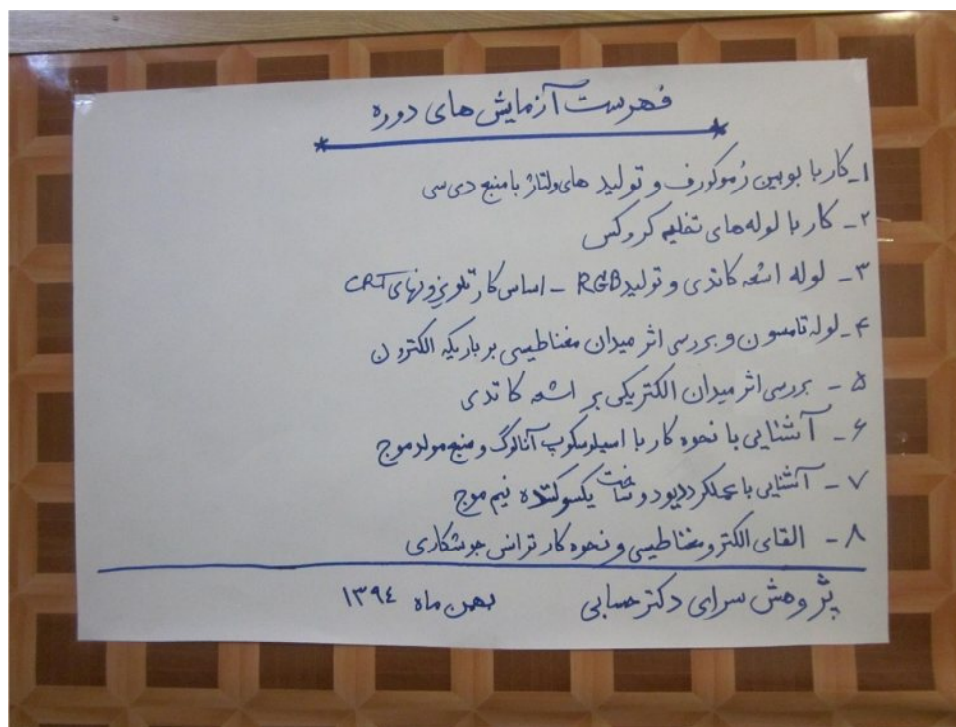 فهرست آزمایش های دوره
۱_ کار با بوبین رُموکورف و تولید های ولتاژ با منبع دی سی
۲_ کار با لوله های تخلیه کروکس
۳_ لوله اشعه کاتدی و تولید RGB _ اساس کار تلویزونهای CRT
۴_ لوله تامسون و بررسی اثر میدان مغناطیسی بر باریکه الکترون
۵_ بررسی اثر میدان الکتریکی بر اشعه کاتدی
۶_ آشنایی با نحوه کار با اسیلوسکوپ آنالوگ و منبع مولد موج
۷_ آشنایی با عملکرد دیود و ساخت یکسوکننده نیم موج
۸_ القای الکترومغناطیسی و نحوه کار ترانس جوشکاری
پژوهش سرای دکتر حسابی بهمن ماه ۱۳۹۴